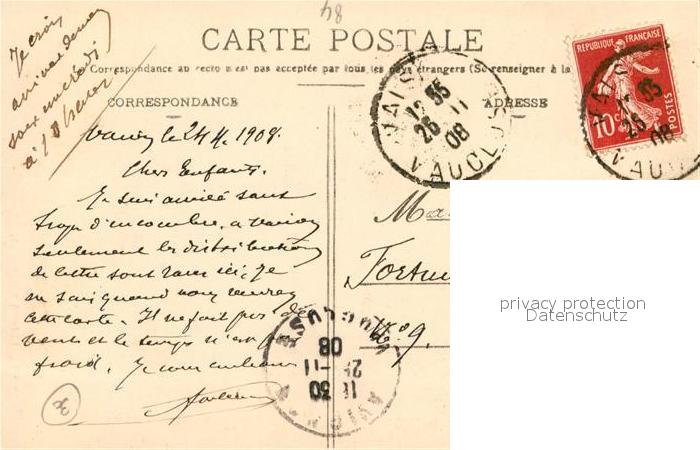 84
CARTE POSTALE
Correspondance au recto n'est pas acceptée par tous les pays étrangers (Se renseigner à la
CORRESPONDANCE
ADRESSE
Je crois
arriver demain
soir mercredi
à 10 heures
le 24 1908.
Chers Enfants.
Je suis arrivé sans
trop d'encombre, a
seulement les distributions
de lettre sont rares ici, je
ne sais quand vous verrez
cette carte. Il ne fait pas de
vent et le temps n'est pas
froid. Je vous embrasse
VAISON
12 35
26 11
08
VAUCLUSE
REPUBLIQUE FRANÇAISE
10 c
POSTES
VAIS
12 35
26
08
VAU
VAUCLUSE
08
11
18 30
privacy protection
Datenschutz
No 9.